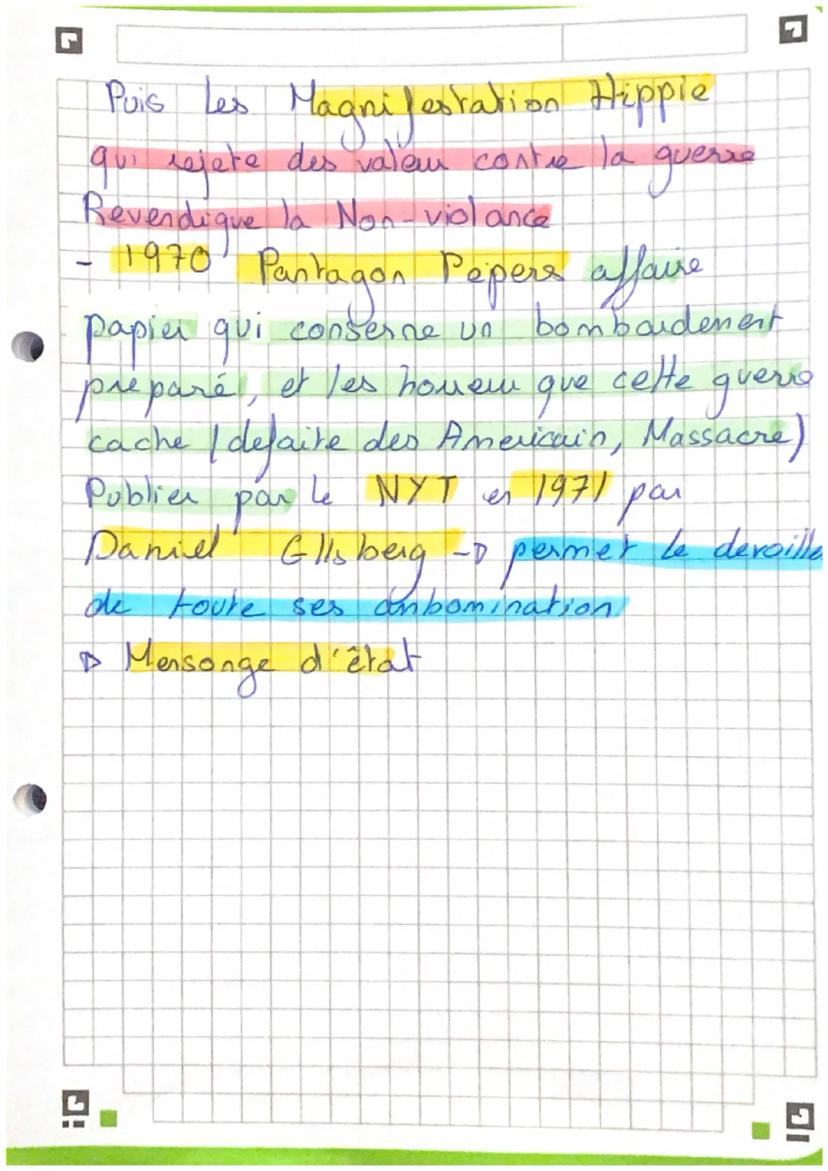 Puis les Magnifestration Hippie
qui rejete des valeur contre la guerre
Revendique la Non-violance
- 1970 Pantagon Pepers affaire
papier qui conserne un bombardement
preparé, et les horreur que cette guerre
cache (defaite des Americain, Massacre)
Publier par le NYT en 1971 par
Daniel Ellsberg -> permet le devoille
de toute ses anbomination
▷ Mensonge d'êtat